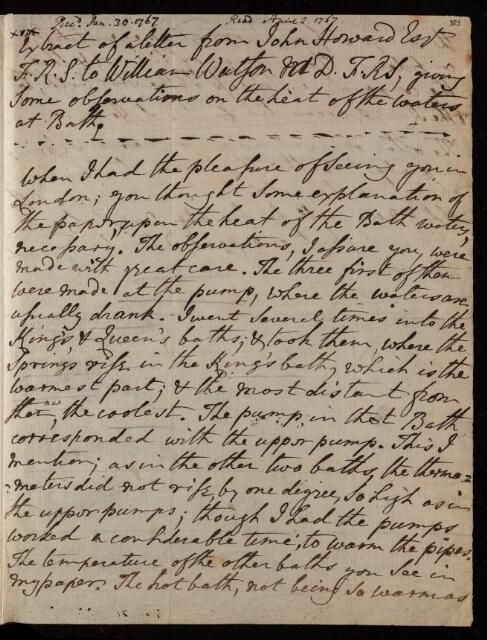 Recd. Jan. 30. 1767. Read April 2. 1767.
Extract of a letter from John Howard Esqr
F.R.S. to William Watson M.D. F.R.S, giving
some observations on the heat of the waters
at Bath.
When I had the pleasure of seeing you in
London; you thought some explanation of
the paper, upon the heat of the Bath water,
necessary. The observations, I assure you, were
made with great care. The three first of them
were made at the pump, where the waters are
usually drank. I went several times into the
King's, & Queen's baths; & took them, where the
Springs rise in the King's bath, which is the
warmest part; & the most distant from
them, the coolest. The pump, in that Bath
corresponded with the upper pump. This I
mention; as in the other two baths, the thermo=
=meters did not rise, by one degree, so high as in
the upper pumps; though I had the pumps
worked a considerable time, to warm the pipes.
The temperature of the other baths you see in
my paper. The hot bath, not being so warm as